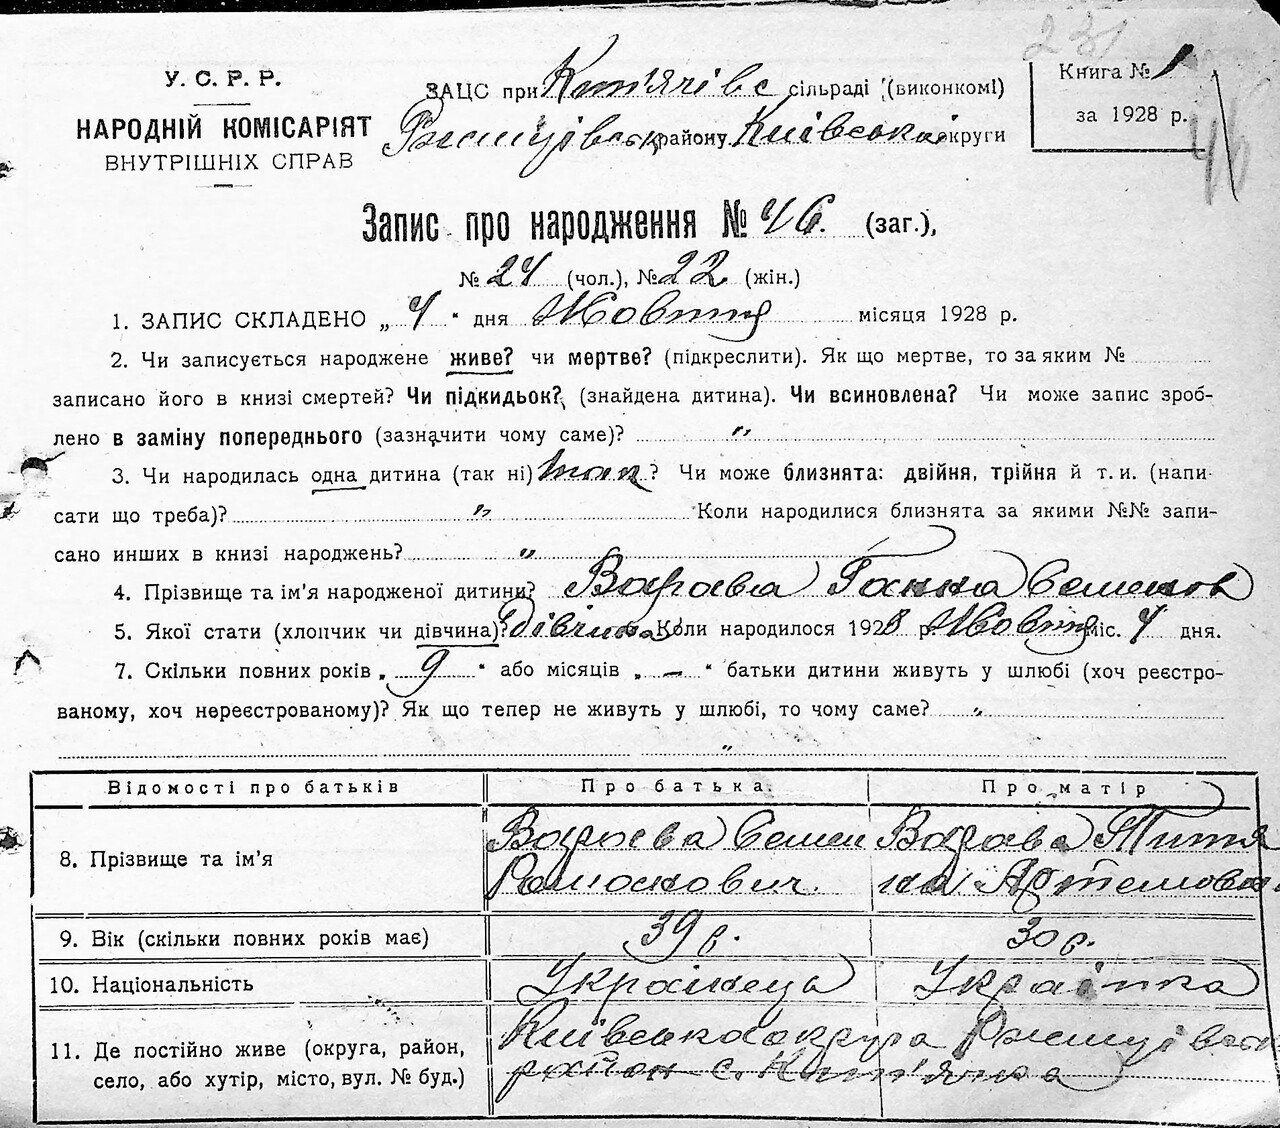 231
У. С. Р. Р.
НАРОДНІЙ КОМІСАРІЯТ
ВНУТРІШНІХ СПРАВ
ЗАЦС при Кип'ячівс сільраді (виконкомі)
Ржищівськ району Київської округи
Книга № 1
за 1928 р.
46
Запис про народження № 46. (заг.),
№ 24 (чол.), № 22 (жін.)
1. ЗАПИС СКЛАДЕНО „ 4 " дня Жовтня місяця 1928 р.
2. Чи записується народжене живе? чи мертве? (підкреслити). Як що мертве, то за яким №
записано його в книзі смертей? Чи підкидьок? (знайдена дитина). Чи всиновлена? Чи може запис зроб-
лено в заміну попереднього (зазначити чому саме)? "
3. Чи народилась одна дитина (так ні) так? Чи може близнята: двійня, трійня й т. и. (напи-
сати що треба)? " Коли народилися близнята за якими №№ запи-
сано инших в книзі народжень? "
4. Прізвище та ім'я народженої дитини? Варава Ганна Семенов
5. Якої стати (хлопчик чи дівчина)? дівчина Коли народилося 1928 р. Жовтня міс. 4 дня.
7. Скільки повних років „ 9 " або місяців „ — " батьки дитини живуть у шлюбі (хоч реєстро-
ваному, хоч нереєстрованому)? Як що тепер не живуть у шлюбі, то чому саме? "
"
Відомості про батьків Про батька. Про матір
8. Прізвище та ім'я Варава Семен Романович. Варава Тетяна Артемовна
9. Вік (скільки повних років має) 39 р. 30 р.
10. Національність Українець Українка
11. Де постійно живе (округа, район, Київська округа Ржищівськ
село, або хутір, місто, вул. № буд.) район с. Кип'ячка